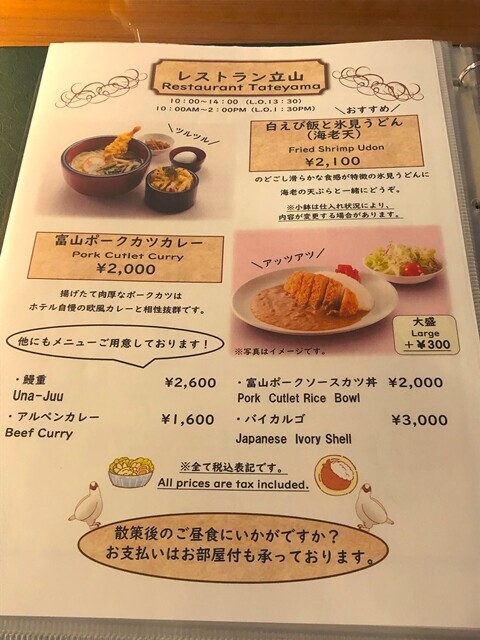 レストラン立山
Restaurant Tateyama
10:00～14:00 (L.O.13:30)
10:00AM～2:00PM (L.O.1:30PM)
＼おすすめ／
白えび飯と氷見うどん
（海老天）
Fried Shrimp Udon
¥2,100
のどごし滑らかな食感が特徴の氷見うどんに
海老の天ぷらと一緒にどうぞ。
※小鉢は仕入れ状況により、
内容が変更する場合があります。
＼ツルツル／
富山ポークカツカレー
Pork Cutlet Curry
¥2,000
揚げたて肉厚なポークカツは
ホテル自慢の欧風カレーと相性抜群です。
＼アッツアツ／
大盛
Large
+¥300
※写真はイメージです。
他にもメニューご用意しております！
・鰻重 ¥2,600
Una-Juu
・アルペンカレー ¥1,600
Beef Curry
・富山ポークソースカツ丼 ¥2,000
Pork Cutlet Rice Bowl
・バイカルゴ ¥3,000
Japanese Ivory Shell
※全て税込表記です。
All prices are tax included.
散策後のご昼食にいかがですか？
お支払いはお部屋付も承っております。